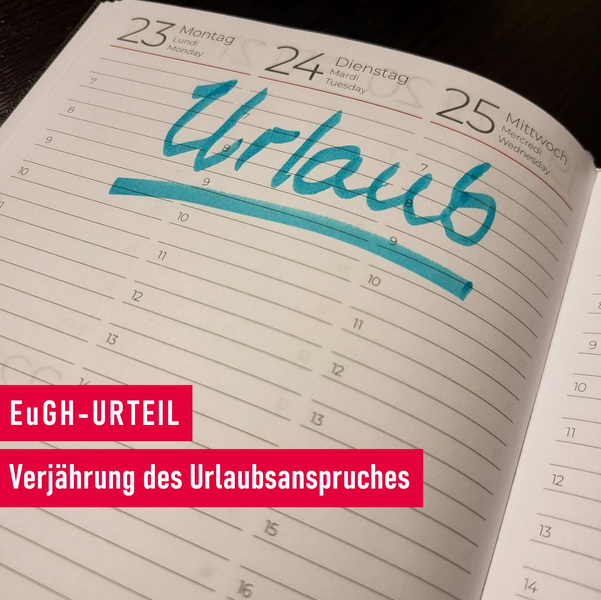 23 Montag
Lundi
Monday
24 Dienstag
Mardi
Tuesday
25 Mittwoch
Mercredi
Wednesday
Urlaub
7
8
9
10
7
9
10
11
12
13
7
8
9
10
11
12
13
15
16
9
10
11
12
13
14
EuGH-URTEIL
Verjährung des Urlaubsanspruches